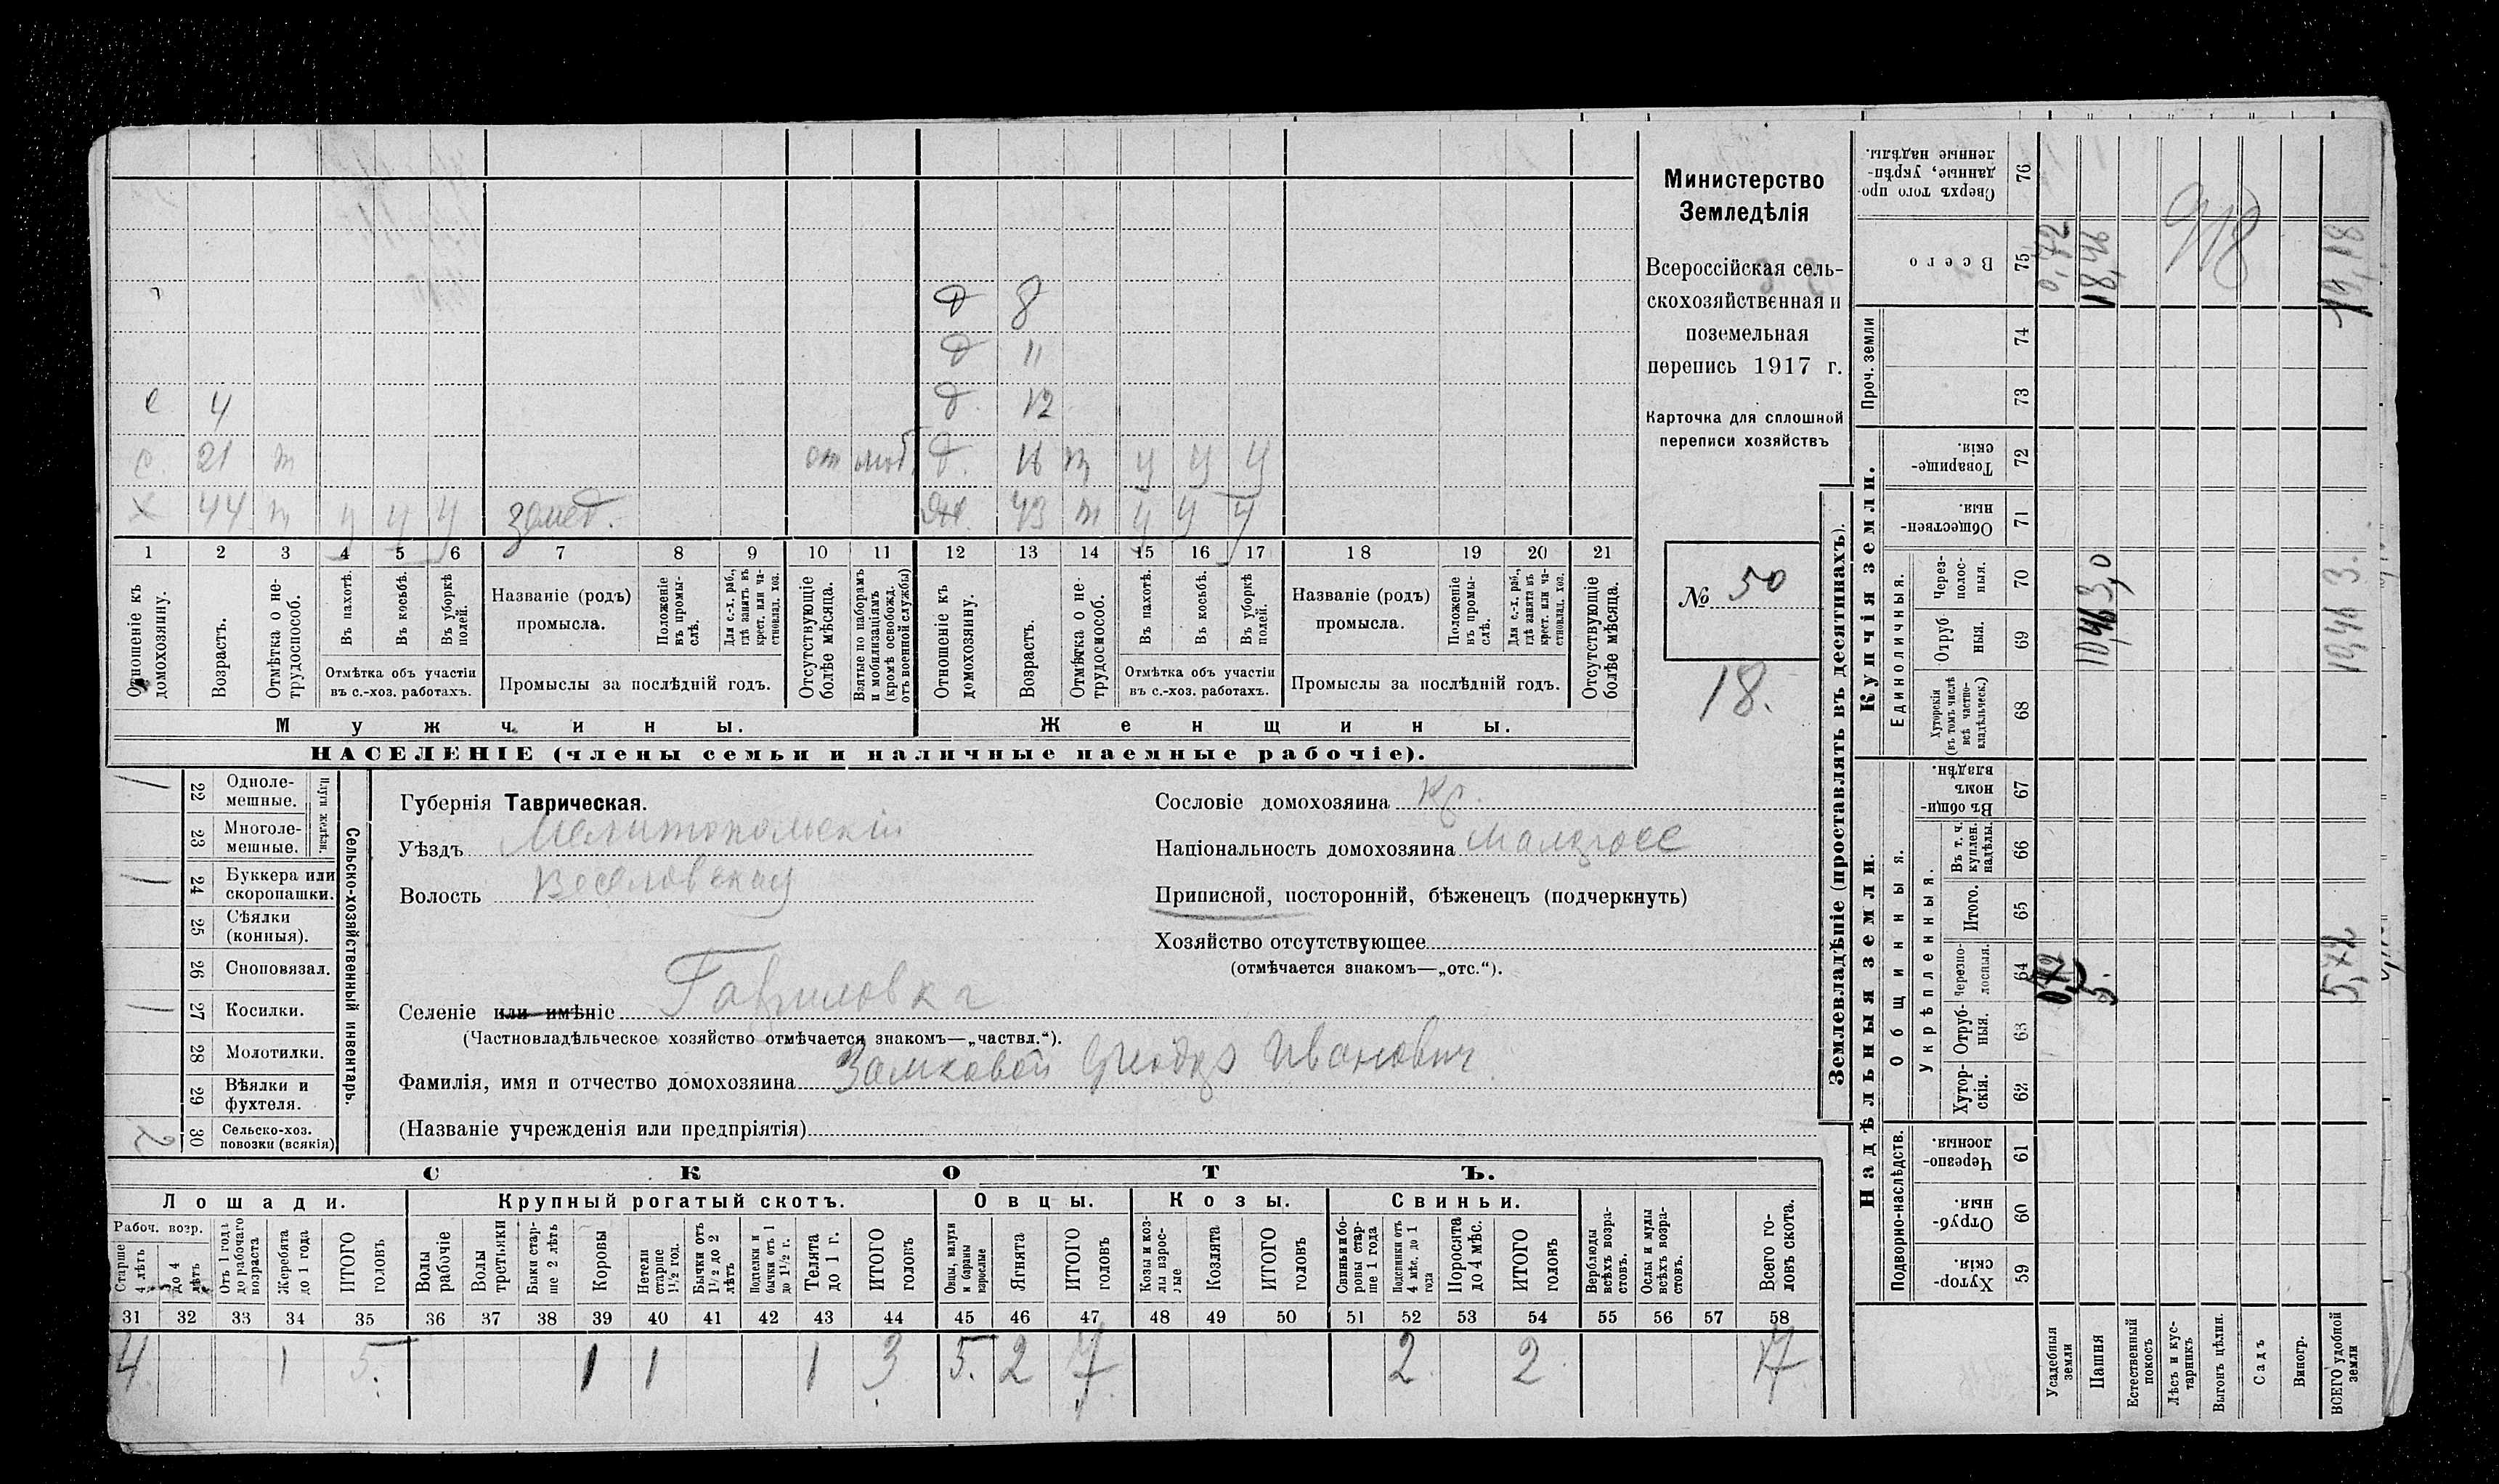 д 8
д 11
с 4 д. 12
с. 21 т от моб. д. 16 т у у у
х 44 т у у у землед. жн. 43 т у у у
1 2 3 4 5 6 7 8 9 10 11 12 13 14 15 16 17 18 19 20 21
Отношеніе къ домохозяину.
Возрастъ.
Отмѣтка о нетрудоспособ.
Въ пахотѣ.
Въ косьбѣ.
Въ уборкѣ полей.
Отмѣтка объ участіи
въ с.-хоз. работахъ.
Названіе (родъ)
промысла.
Положеніе въ промыслѣ.
Для с.-х. раб., гдѣ занятъ въ крест. или частновлад. хоз.
Промыслы за послѣдній годъ.
Отсутствующіе болѣе мѣсяца.
Взятые по наборамъ и мобилизаціямъ (кромѣ освобожд. отъ военной службы)
Отношеніе къ домохозяину.
Возрастъ.
Отмѣтка о нетрудоспособ.
Въ пахотѣ.
Въ косьбѣ.
Въ уборкѣ полей.
Отмѣтка объ участіи
въ с.-хоз. работахъ.
Названіе (родъ)
промысла.
Положеніе въ промыслѣ.
Для с.-х. раб., гдѣ занята въ крест. или частновлад. хоз.
Промыслы за послѣдній годъ.
Отсутствующіе болѣе мѣсяца.
Мужчины. Женщины.
НАСЕЛЕНІЕ (члены семьи и наличные наемные рабочіе).
Министерство
Земледѣлія
Всероссійская сель-
скохозяйственная и
поземельная
перепись 1917 г.
Карточка для сплошной
переписи хозяйствъ
№ 50
18.
Сельско-хозяйственный инвентарь.
Плуги желѣзн.
22 Одноле-
мешные.
23 Многоле-
мешные.
24 Буккера или
скоропашки.
25 Сѣялки
(конныя).
26 Сноповязал.
27 Косилки.
28 Молотилки.
29 Вѣялки и
фухтеля.
2 30 Сельско-хоз.
повозки (всякія)
Губернія Таврическая.
Уѣздъ Мелитопольскій
Волость Веселовская
Селеніе или имѣніе Гавриловка
(Частновладѣльческое хозяйство отмѣчается знакомъ—„частвл.“).
Фамилія, имя и отчество домохозяина Замковой Иванович
(Названіе учрежденія или предпріятія)
Сословіе домохозяина кр.
Національность домохозяина малоросс
Приписной, посторонній, бѣженецъ (подчеркнуть)
Хозяйство отсутствующее
(отмѣчается знакомъ—„отс.“).
СКОТЪ.
Лошади. Крупный рогатый скотъ. Овцы. Козы. Свиньи.
Рабоч. возр.
Старше 4 лѣтъ
до 4 лѣтъ
Отъ 1 года до рабочаго возраста
Жеребята до 1 года
ИТОГО головъ
Волы рабочіе
Волы третьяки
Быки старше 2 лѣтъ
Коровы
Нетели старше 1½ год.
Бычки отъ 1½ до 2 лѣтъ
Подтелки и бычки отъ 1 до 1½ г.
Телята до 1 г.
ИТОГО головъ
Овцы, валухи и бараны взрослые
Ягнята
ИТОГО головъ
Козы и козлы взрослые
Козлята
ИТОГО головъ
Свиньи и боровы старше 1 года
Подсвинки отъ 4 мѣс. до 1 года
Поросята до 4 мѣс.
ИТОГО головъ
Верблюды всѣхъ возрастовъ.
Ослы и мулы всѣхъ возрастовъ.
Всего головъ скота.
31 32 33 34 35 36 37 38 39 40 41 42 43 44 45 46 47 48 49 50 51 52 53 54 55 56 57 58
4 1 5. 1 1 1 3 5. 2 7 2 2 17
Землевладѣніе (проставлять въ десятинахъ).
Купчія земли.
Надѣльныя земли.
Сверхъ того проданные, укрѣпленные надѣлы. 76
Всего 75 0,72 18,46 918 19,18
Проч. земли 74 73
Товарищескія. 72
Общественныя. 71
Единоличныя.
Черезполосныя. 70
Отрубныя. 69
10,46 3,0
10,46 3.
Хуторскія (въ томъ числѣ всѣ частновладѣльческ.) 68
Общинныя.
Въ общинномъ владѣн. 67
Въ т. ч. куплен. надѣлы. 66
Укрѣпленныя.
Итого. 65
Черезполосныя. 64 0,72 5. 5,72
Отрубныя. 63
Хуторскія. 62
Подворно-наслѣдств.
Черезполосныя. 61
Отрубныя. 60
Хуторскія. 59
Усадебныя земли
Пашня
Естественный покосъ
Лѣсъ и кустарникъ
Выгонъ цѣлин.
Садъ
Виногр.
ВСЕГО удобной земли